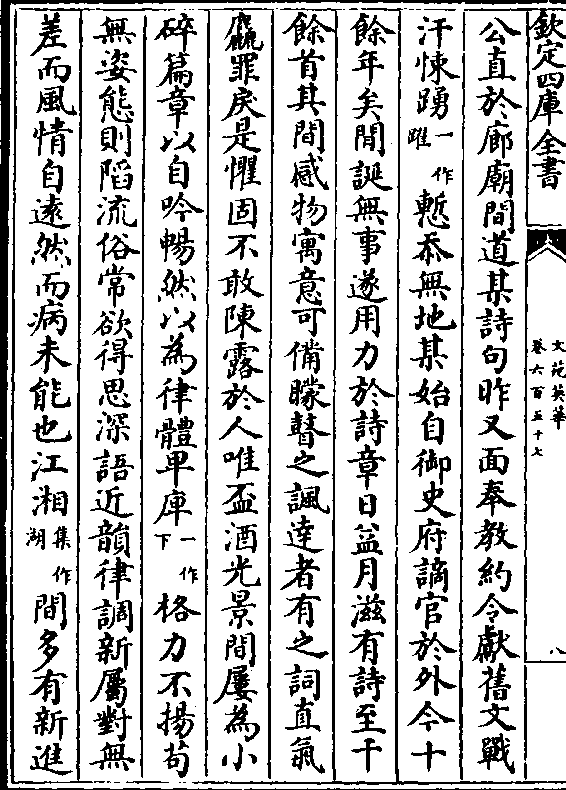 欽定四庫全書
文苑英華
卷六百五十七
八
公直於廊廟間道某詩句昨又面奉教約令獻舊文戰
汗悚踴一作躍慙忝無地某始自御史府謫官於外今十
餘年矣閒誕無事遂用力於詩章日益月滋有詩至千
餘首其間感物寓意可備矇瞽之諷達者有之詞直氣
麤罪戾是懼固不敢陳露於人唯盃酒光景間屢為小
碎篇章以自吟暢然以為律體卑庳一作下格力不揚苟
無姿態則陷流俗常欲得思深語近韻律調新屬對無
差而風情自遠然而病未能也江湘集作湖間多有新進